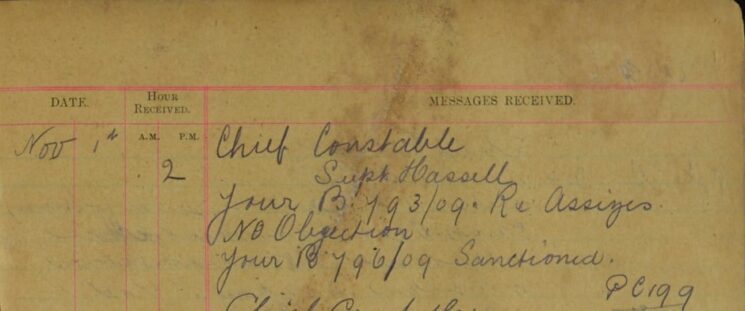 DATE. HOUR RECEIVED. MESSAGES RECEIVED.
Nov 1st A.M. P.M. Chief Constable
2 Supt Hassell
Your B. 793/09. Re Assizes.
No Objection
Your B 796/09 Sanctioned.
PC199
Chief